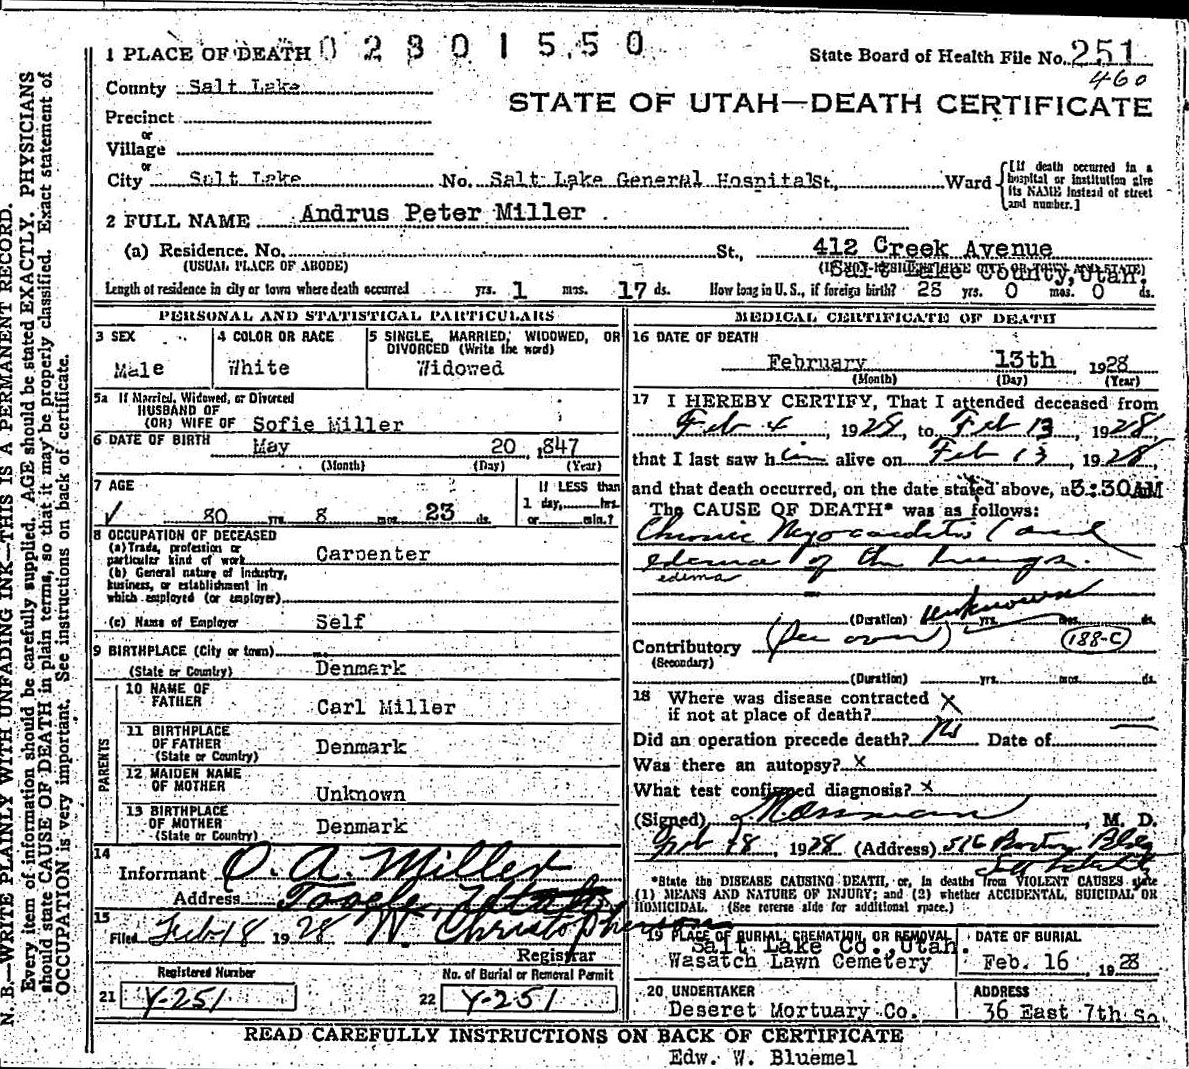 1 PLACE OF DEATH 02801550
State Board of Health File No. 251
460
County Salt Lake
STATE OF UTAH—DEATH CERTIFICATE
Precinct
or
Village
or
City Salt Lake No. Salt Lake General Hospital St., Ward
[If death occurred in a hospital or institution give its NAME instead of street and number.]
2 FULL NAME Andrus Peter Miller
(a) Residence. No. St., 412 Creek Avenue
(USUAL PLACE OF ABODE)
Salt Lake County, Utah.
Length of residence in city or town where death occurred yrs. 1 mos. 17 ds. How long in U. S., if foreign birth? 28 yrs. 0 mos. 0 ds.
PERSONAL AND STATISTICAL PARTICULARS
3 SEX
Male
4 COLOR OR RACE
White
5 SINGLE, MARRIED, WIDOWED, OR DIVORCED (Write the word)
Widowed
5a If Married, Widowed, or Divorced
HUSBAND OF
(OR) WIFE OF Sofie Miller
6 DATE OF BIRTH May 20, 1847
(Month) (Day) (Year)
7 AGE
80 yrs. 8 mos. 23 ds.
If LESS than
1 day, hrs.
or min.?
8 OCCUPATION OF DECEASED
(a) Trade, profession or
particular kind of work Carpenter
(b) General nature of industry,
business, or establishment in
which employed (or employer)
(c) Name of Employer Self
9 BIRTHPLACE (City or town)
(State or Country) Denmark
PARENTS
10 NAME OF
FATHER Carl Miller
11 BIRTHPLACE
OF FATHER
(State or Country) Denmark
12 MAIDEN NAME
OF MOTHER Unknown
13 BIRTHPLACE
OF MOTHER
(State or Country) Denmark
14
Informant O. A. Miller
Address Tooele, Utah
15
Filed Feb 18 1928 N. Christopherson
Registrar
Registered Number
21 Y-251
No. of Burial or Removal Permit
22 Y-251
MEDICAL CERTIFICATE OF DEATH
16 DATE OF DEATH
February 13th 1928
(Month) (Day) (Year)
17 I HEREBY CERTIFY, That I attended deceased from
Feb 4, 1928, to Feb 13, 1928
that I last saw him alive on Feb 13, 1928,
and that death occurred, on the date stated above, a 3:30 AM
The CAUSE OF DEATH* was as follows:
Chronic Myocarditis and
edema of the lungs.
edema
(Duration) unknown yrs. mos. ds.
Contributory (Per over) 188-C
(Secondary)
(Duration) yrs. mos. ds.
18 Where was disease contracted
if not at place of death? X
Did an operation precede death? No Date of
Was there an autopsy? X
What test confirmed diagnosis? X
(Signed) M. D.
Feb 18, 1928 (Address) 516 Boston Bldg
*State the DISEASE CAUSING DEATH, or, in deaths from VIOLENT CAUSES state
(1) MEANS AND NATURE OF INJURY; and (2) whether ACCIDENTAL, SUICIDAL OR
HOMICIDAL. (See reverse side for additional space.)
19 PLACE OF BURIAL, CREMATION, OR REMOVAL
Salt Lake Co., Utah.
Wasatch Lawn Cemetery
DATE OF BURIAL
Feb. 16, 1928
20 UNDERTAKER
Deseret Mortuary Co.
ADDRESS
36 East 7th So.
READ CAREFULLY INSTRUCTIONS ON BACK OF CERTIFICATE
Edw. W. Bluemel
N. B.—WRITE PLAINLY WITH UNFADING INK—THIS IS A PERMANENT RECORD.
Every item of information should be carefully supplied. AGE should be stated EXACTLY. PHYSICIANS
should state CAUSE OF DEATH in plain terms, so that it may be properly classified. Exact statement of
OCCUPATION is very important. See instructions on back of certificate.